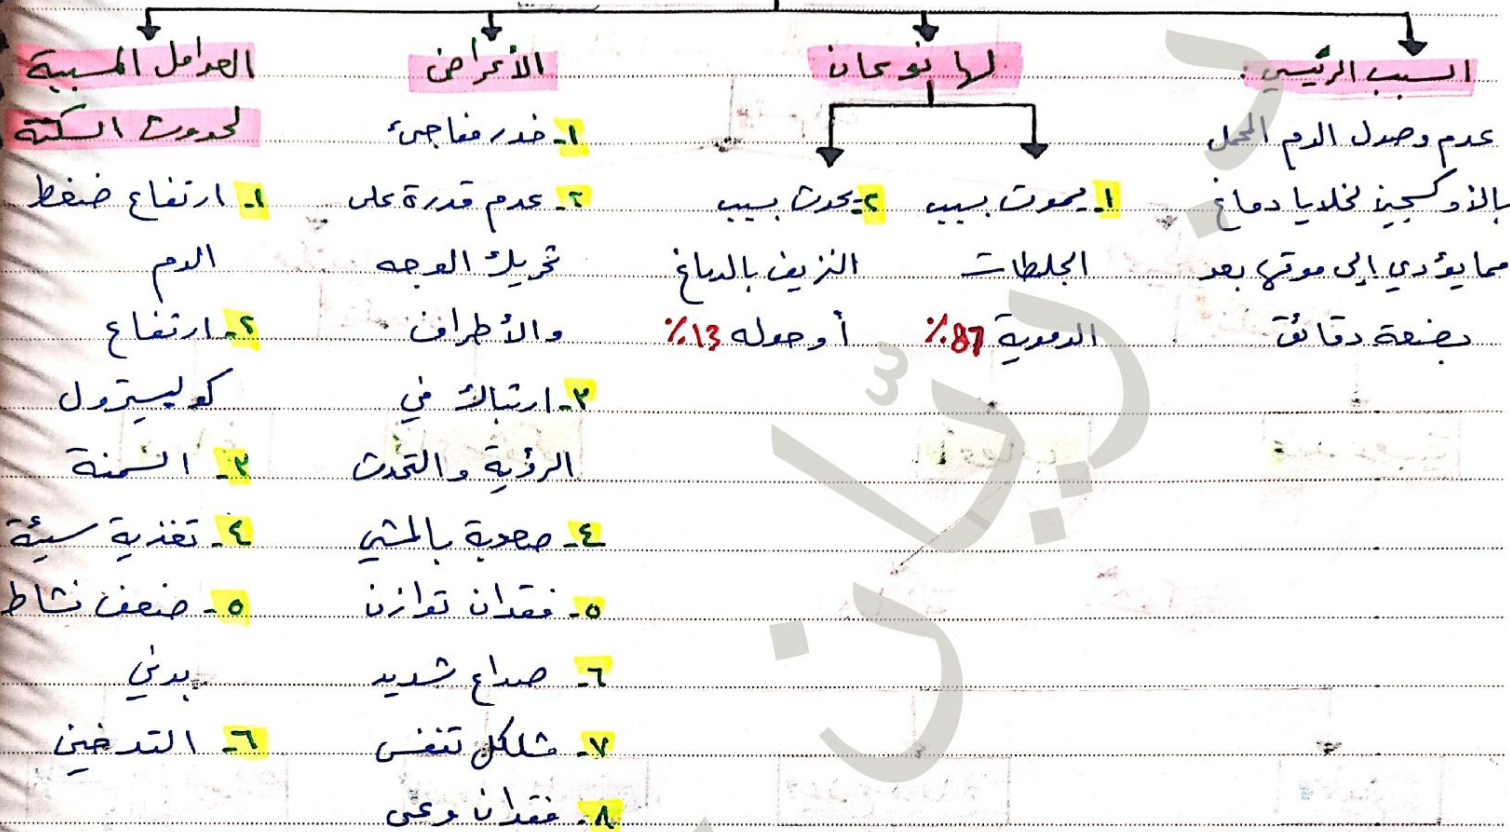 السبب الرئيسي:
عدم وصول الدم المحمل
بالأوكسجين لخلايا دماغ
مما يؤدي إلى موتها بعد
بضعة دقائق
لها نوعان
١- يموت بسبب
الجلطات
الدموية 87%
٢- يحدث بسبب
النزيف بالدماغ
أو حوله 13%
الأعراض
١- خدر مفاجئ
٢- عدم قدرة على
تحريك الوجه
والأطراف
٣- ارتباك في
الرؤية والتحدث
٤- صعوبة بالمشي
٥- فقدان توازن
٦- صداع شديد
٧- مشلكل تنفس
٨- فقدان وعي
العوامل المسببة
لحدوث السكتة
١- ارتفاع ضغط
الدم
٢- ارتفاع
كوليسترول
٣- السمنة
٤- تغذية سيئة
٥- ضعف نشاط
بدني
٦- التدخين
د. ريّان